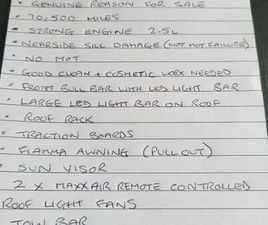 • GENUINE REASON FOR SALE
• 70,500 MILES
• STRONG ENGINE 2.5L
• NEARSIDE SILL DAMAGE (NOT MOT FAILURE)
• NO MOT
• GOOD CLEAN + COSMETIC WORK NEEDED
• FRONT BULL BAR WITH LED LIGHT BAR
• LARGE LED LIGHT BAR ON ROOF
• ROOF RACK
• TRACTION BOARDS
• FIAMMA AWNING (PULL OUT)
• SUN VISOR
2 X MAXXAIR REMOTE CONTROLLED
ROOF LIGHT FANS
TOW BAR